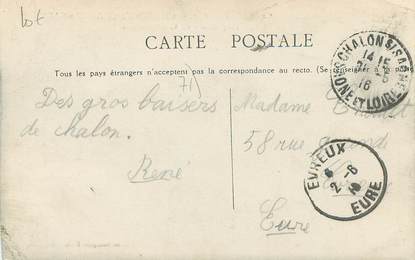 lot
CARTE POSTALE
Tous les pays étrangers n'acceptent pas la correspondance au recto. (Se renseigner à la
71)
Des gros baisers
de chalon.
René
Madame
58 rue
Eure
CHALON S/SAONE
14 15
16
SAONE ET LOIRE
EVREUX
2-6
EURE